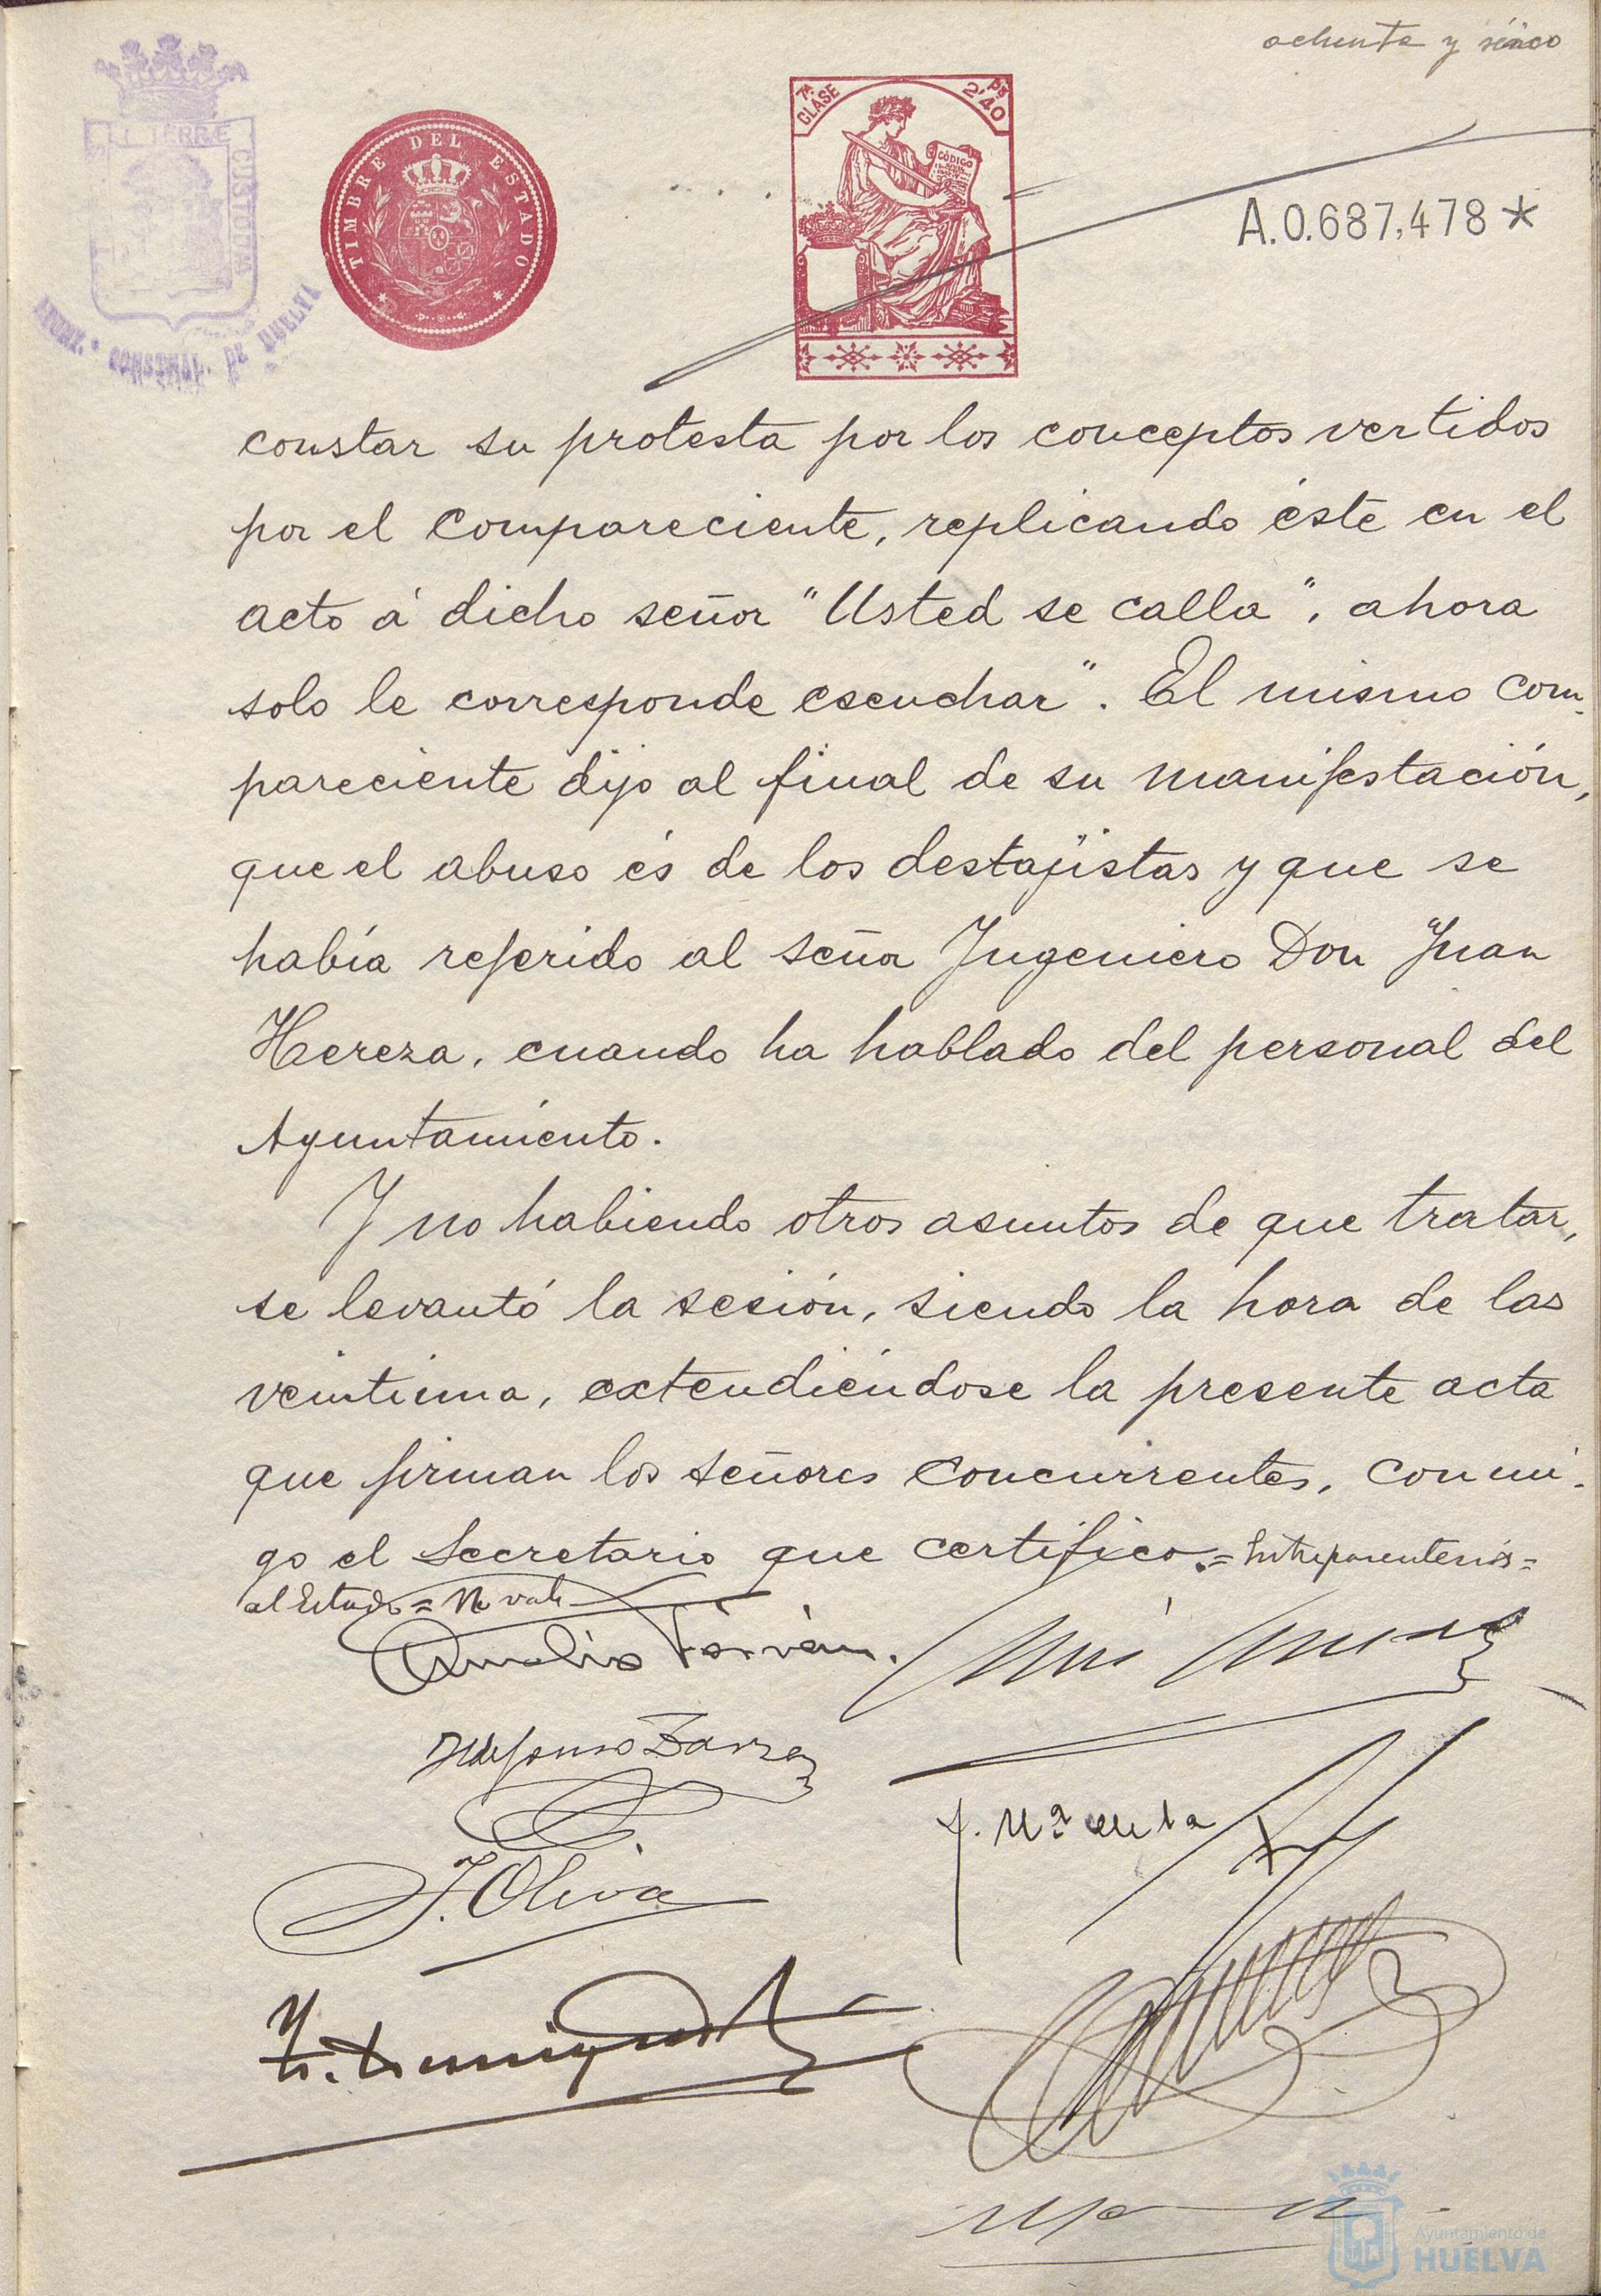 ochenta y cinco
TERRÆ
CUSTODIA
AYUNT. CONSTNAL. DE HUELVA
TIMBRE DEL ESTADO
7ª CLASE
Pts 2'40
CÓDIGO
A.0.687,478*
constar su protesta por los conceptos vertidos
por el compareciente, replicando éste en el
acto á dicho señor "Usted se calla", ahora
solo le corresponde escuchar". El mismo com-
pareciente dijo al final de su manifestación,
que el abuso és de los destajistas y que se
había referido al señor Ingeniero Don Juan
Hereza, cuando ha hablado del personal del
Ayuntamiento.
Y no habiendo otros asuntos de que tratar,
se levantó la sesión, siendo la hora de las
veintiuna, extendiéndose la presente acta
que firman los señores concurrentes, conmi-
go el Secretario que certifico.=Entreparentesis=
al Estado= No vale
J. Oliva
Ayuntamiento de
HUELVA